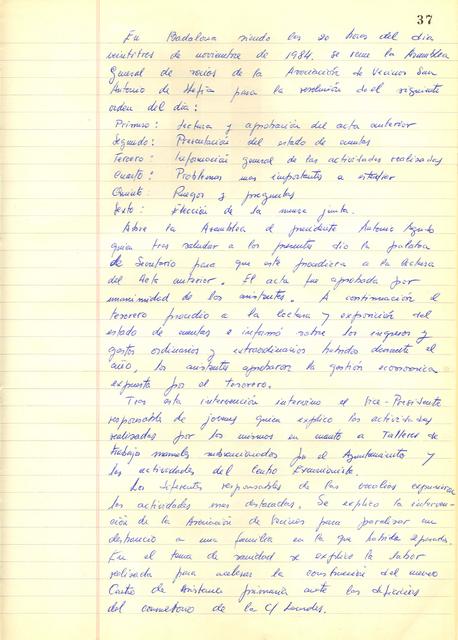 37
En Badalona siendo las 20 horas del día
veintitres de noviembre de 1984. se reune la Asamblea
General de socios de la Asociación de Vecinos San
Antonio de Llefia para la resolución del siguiente
orden del día:
Primero: Lectura y aprobación del acta anterior
Segundo: Presentación del estado de cuentas
Tercero: Información general de las actividades realizadas
Cuarto: Problemas mas importantes a
Quinto: Ruegos y preguntas
Sexto: Elección de la nueva junta.
Abre la Asamblea el presidente Antonio
quien tras saludar a los presentes dio la palabra
de Secretario para que este procediera a la lectura
del Acta anterior. El acta fue aprobada por
unanimidad de los asistentes. A continuación el
tesorero procedio a la lectura y exposición del
estado de cuentas e informó sobre los ingresos y
gastos ordinarios y extraordinarios habidos durante el
año, los asistentes aprobaron la gestión economica
expuesta por el tesorero.
Tras esta intervención intervino el Vice-Presidente
responsable de jovenes quien explico las actividades
realizadas por los mismos en cuanto a Talleres de
trabajo manuales subvencionados por el Ayuntamiento y
las actividades del Centro Excursionista.
Los diferentes responsables de las vocalias expusieron
las actividades mas destacadas. Se explico la interven-
ción de la Asociación de Vecinos para paralizar un
desahucio a una familia en la que habida
En el tema de sanidad se explico la labor
realizada para acelerar la construcción del nuevo
Centro de Asistencia primaria ante las deficiencias
del consultorio de la C/ Lourdes.